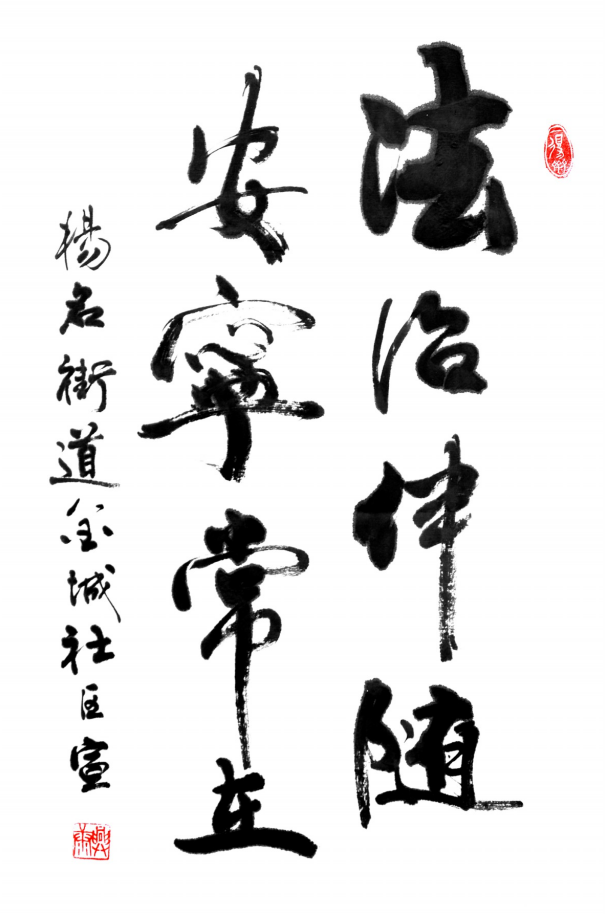 法治伴随
安宁常在
楊名街道金城社区宣